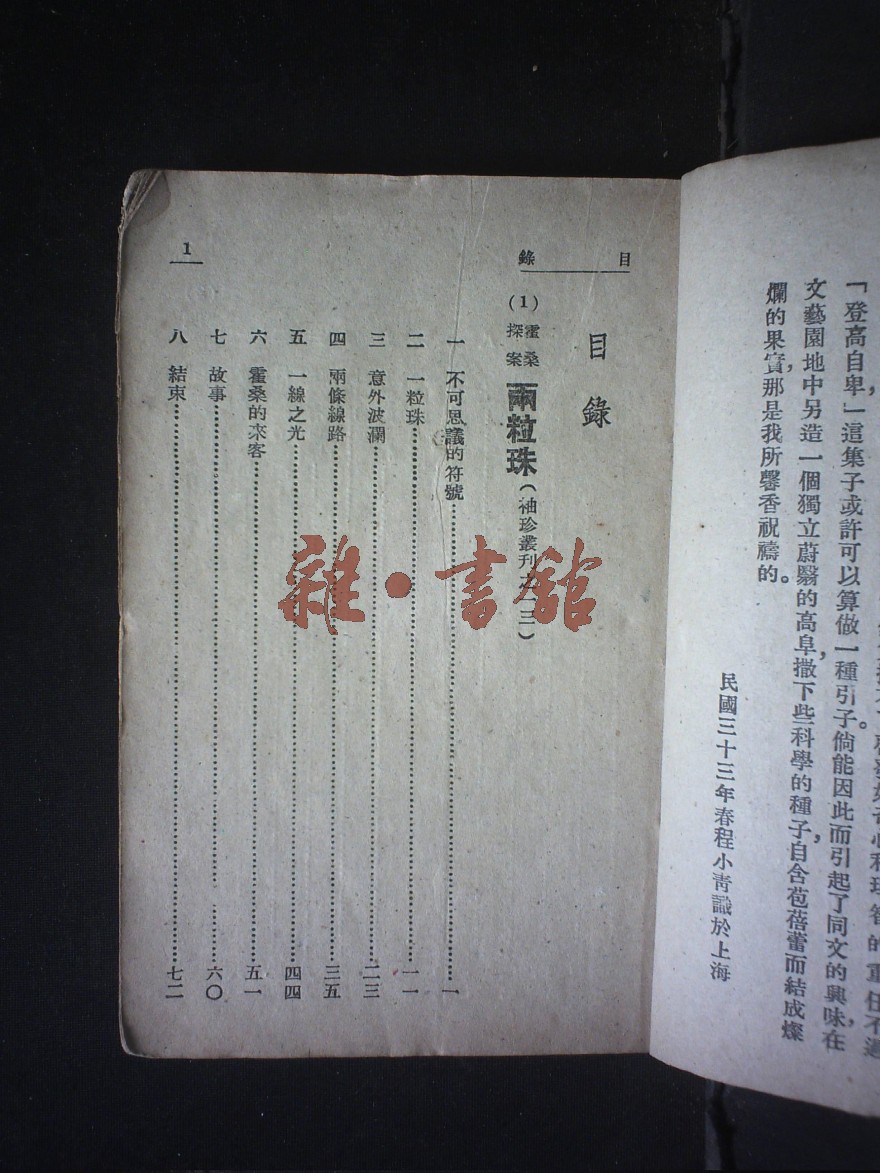 「登高自卑」這集子或許可以算做一種引子。倘能因此而引起了同文的興味，在
文藝園地中另造一個獨立蔚翳的高阜，撒下些科學的種子，自含苞蓓蕾而結成燦
爛的果實，那是我所馨香祝禱的。
民國三十三年春程小青識於上海
目錄
1
目錄
(1)霍桑探案 兩粒珠（袖珍叢刊之二三）
一 不可思議的符號……一
二 一粒珠……一一
三 意外波瀾……二三
四 兩條線路……三五
五 一線之光……四四
六 霍桑的來客……五一
七 故事……六〇
八 結束……七二
雜·書館